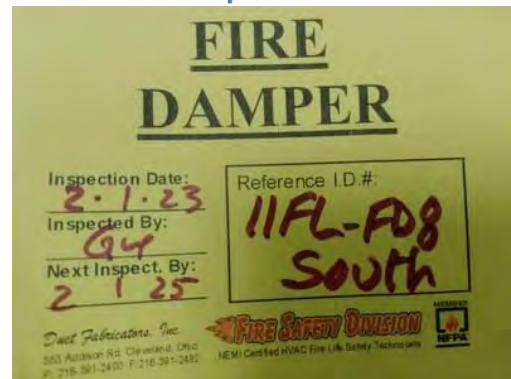 FIRE
DAMPER
Inspection Date:
2.1.23
Inspected By:
Guy
Next Inspect. By:
2 1 25
Reference I.D.#:
11FL-FD8
South
Duct Fabricators, Inc.
Addison Rd. Cleveland, Ohio
P: 216-391-2400 F: 216-391-2492
FIRE SAFETY DIVISION
NEMI Certified HVAC Fire Life Safety Technicians
MEMBER
NFPA